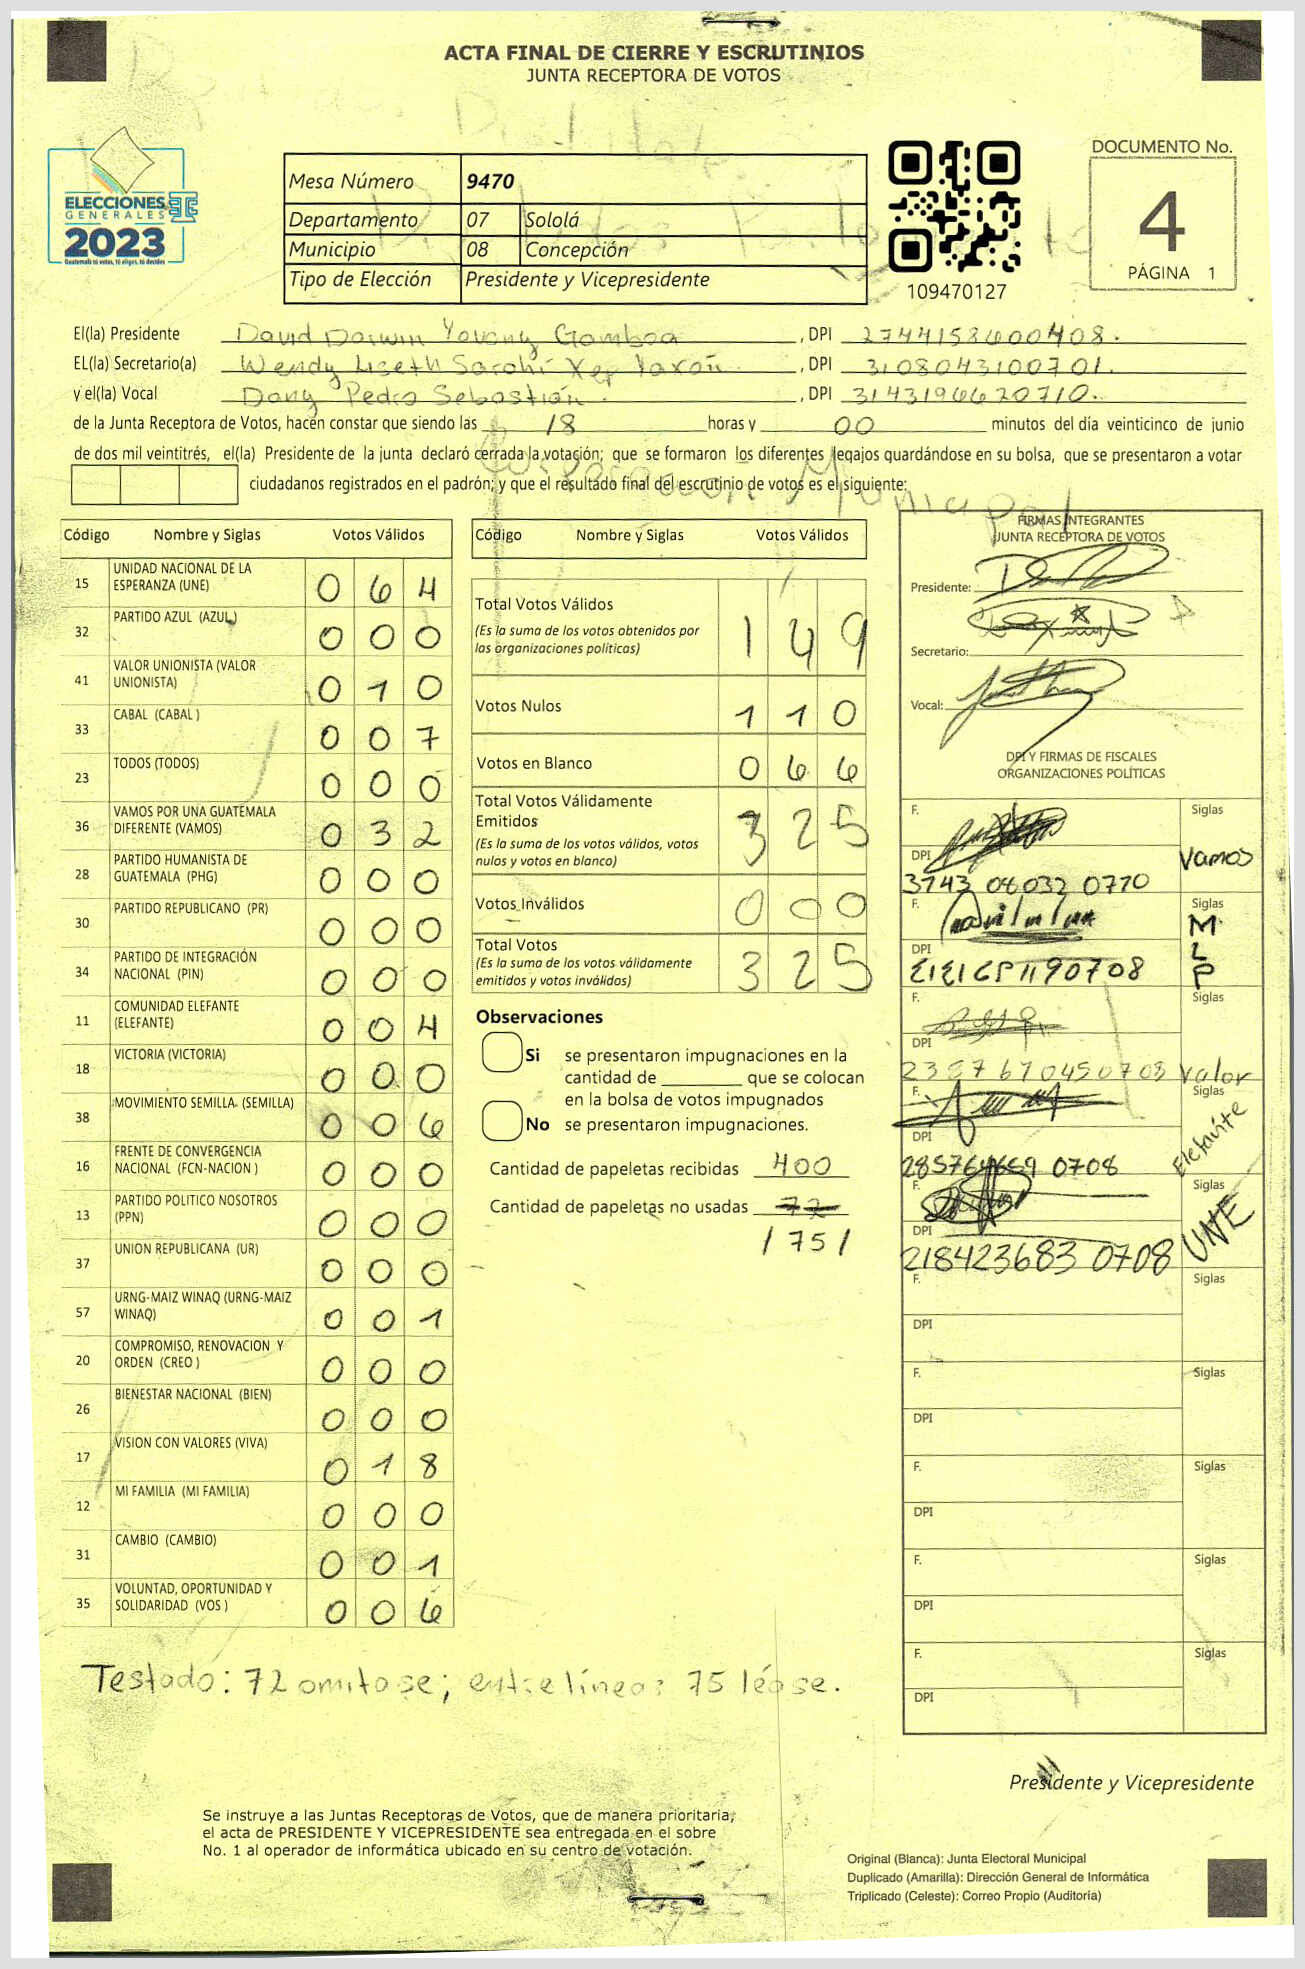 ACTA FINAL DE CIERRE Y ESCRUTINIOS
JUNTA RECEPTORA DE VOTOS
ELECCIONES
GENERALES
2023
Guatemala tú votas, tú eliges, tú decides
Mesa Número 9470
Departamento 07 Sololá
Municipio 08 Concepción
Tipo de Elección Presidente y Vicepresidente
109470127
DOCUMENTO No.
4
PÁGINA 1
El(la) Presidente David Darwin Yovany Gamboa, DPI 2744158600408.
EL(la) Secretario(a) Wendy Liseth Sarahí Xep Yaxón, DPI 3108043100701.
y el(la) Vocal Dany Pedro Sebastián., DPI 3143196620710.
de la Junta Receptora de Votos, hacen constar que siendo las 18 horas y 00 minutos del día veinticinco de junio
de dos mil veintitrés, el(la) Presidente de la junta declaró cerrada la votación; que se formaron los diferentes legajos guardándose en su bolsa, que se presentaron a votar
ciudadanos registrados en el padrón; y que el resultado final del escrutinio de votos es el siguiente:
Código Nombre y Siglas Votos Válidos
15 UNIDAD NACIONAL DE LA ESPERANZA (UNE) 0 6 4
32 PARTIDO AZUL (AZUL) 0 0 0
41 VALOR UNIONISTA (VALOR UNIONISTA) 0 1 0
33 CABAL (CABAL ) 0 0 7
23 TODOS (TODOS) 0 0 0
36 VAMOS POR UNA GUATEMALA DIFERENTE (VAMOS) 0 3 2
28 PARTIDO HUMANISTA DE GUATEMALA (PHG) 0 0 0
30 PARTIDO REPUBLICANO (PR) 0 0 0
34 PARTIDO DE INTEGRACIÓN NACIONAL (PIN) 0 0 0
11 COMUNIDAD ELEFANTE (ELEFANTE) 0 0 4
18 VICTORIA (VICTORIA) 0 0 0
38 MOVIMIENTO SEMILLA (SEMILLA) 0 0 6
16 FRENTE DE CONVERGENCIA NACIONAL (FCN-NACION ) 0 0 0
13 PARTIDO POLITICO NOSOTROS (PPN) 0 0 0
37 UNION REPUBLICANA (UR) 0 0 0
57 URNG-MAIZ WINAQ (URNG-MAIZ WINAQ) 0 0 1
20 COMPROMISO, RENOVACION Y ORDEN (CREO ) 0 0 0
26 BIENESTAR NACIONAL (BIEN) 0 0 0
17 VISION CON VALORES (VIVA) 0 1 8
12 MI FAMILIA (MI FAMILIA) 0 0 0
31 CAMBIO (CAMBIO) 0 0 1
35 VOLUNTAD, OPORTUNIDAD Y SOLIDARIDAD (VOS ) 0 0 6
Código Nombre y Siglas Votos Válidos
Total Votos Válidos 1 4 9
(Es la suma de los votos obtenidos por
las organizaciones políticas)
Votos Nulos 1 1 0
Votos en Blanco 0 6 6
Total Votos Válidamente
Emitidos 3 2 5
(Es la suma de los votos válidos, votos
nulos y votos en blanco)
Votos Inválidos 0 0 0
Total Votos 3 2 5
(Es la suma de los votos válidamente
emitidos y votos inválidos)
Observaciones
Si se presentaron impugnaciones en la
cantidad de ________ que se colocan
en la bolsa de votos impugnados
No se presentaron impugnaciones.
Cantidad de papeletas recibidas 400
Cantidad de papeletas no usadas 72
/ 75 /
FIRMAS INTEGRANTES
JUNTA RECEPTORA DE VOTOS
Presidente:
Secretario:
Vocal:
DPI Y FIRMAS DE FISCALES
ORGANIZACIONES POLÍTICAS
F. Siglas
DPI Vamos
3743 08032 0770
F. Siglas
DPI MLP
F. Siglas
DPI
2387670450708 Valor
F. Siglas
DPI Elefante
285764659 0708
F. Siglas
DPI UNE
218423683 0708
F. Siglas
DPI
F. Siglas
DPI
F. Siglas
DPI
F. Siglas
DPI
F. Siglas
DPI
Testado: 72 omitase; entre líneas: 75 léase.
Presidente y Vicepresidente
Se instruye a las Juntas Receptoras de Votos, que de manera prioritaria,
el acta de PRESIDENTE Y VICEPRESIDENTE sea entregada en el sobre
No. 1 al operador de informática ubicado en su centro de votación.
Original (Blanca): Junta Electoral Municipal
Duplicado (Amarilla): Dirección General de Informática
Triplicado (Celeste): Correo Propio (Auditoría)